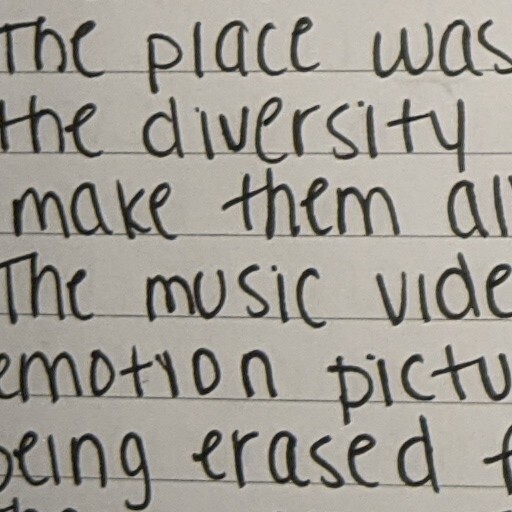 The place was
the diversity
make them al
The music vide
emotion pictu
being erased f